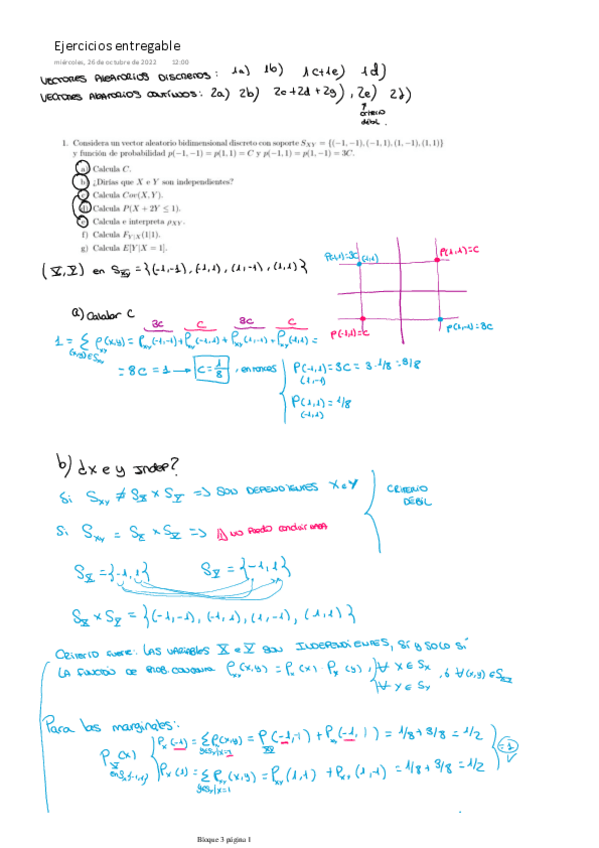 Ejercicios entregable
miércoles, 26 de octubre de 2022 12:00
VECTORES ALEATORIOS DISCRETOS: 1a) 1b) 1c+1e) 1d)
VECTORES ALEATORIOS CONTÍNUOS: 2a) 2b) 2c+2d+2g), 2e) 2f)
↑
criterio
débil.
1. Considera un vector aleatorio bidimensional discreto con soporte S_XY = {(−1,−1), (−1,1), (1,−1), (1,1)}
y función de probabilidad p(−1,−1) = p(1,1) = C y p(−1,1) = p(1,−1) = 3C.
a) Calcula C.
b) ¿Dirías que X e Y son independientes?
c) Calcula Cov(X,Y).
d) Calcula P(X + 2Y ≤ 1).
e) Calcula e interpreta ρ_XY.
f) Calcula F_Y|X(1|1).
g) Calcula E[Y|X = 1].
(X,Y) en S_XY = {(-1,-1), (-1,1), (1,-1), (1,1)}
P(-1,1)=3C (-1,1) P(1,1)=C
P(-1,1)=C P(1,1)=3C
a) Calcular C
3C C 3C C
1 = Σ P(x,y) = P_XY(-1,-1) + P_XY(-1,1) + P_XY(1,-1) + P_XY(1,1) =
(x,y)∈S_XY
= 8C = 1 → C = 1/8, entonces
P(-1,1) = 3C = 3·1/8 = 3/8
(1,-1)
P(1,1) = 1/8
(-1,1)
b) ¿X e Y indep?
Si S_XY ≠ S_X × S_Y ⇒ SON DEPENDIENTES X e Y
CRITERIO
DÉBIL
Si S_XY = S_X × S_Y ⇒ NO PUEDO concluir NADA
S_X = {-1,1} S_Y = {-1,1}
S_X × S_Y = {(-1,-1), (-1,1), (1,-1), (1,1)}
CRITERIO fuerte: LAS VARIABLES X e Y SON INDEPENDIENTES, SÍ Y SOLO SÍ
LA FUNCIÓN DE PROB. CONJUNTA P_XY(x,y) = P_X(x) P_Y(y), ∀ x ∈ S_X, ó ∀(x,y) ∈ S_XY
∀ y ∈ S_Y
Para las marginales:
P_X(x)
P_X(-1) = Σ P_XY(x,y) = P_XY(-1,-1) + P_XY(-1,1) = 1/8 + 3/8 = 1/2
P_X(1) = Σ P_XY(x,y) = P_XY(1,1) + P_XY(1,-1) = 1/8 + 3/8 = 1/2
= 1
Bloque 3 página 1